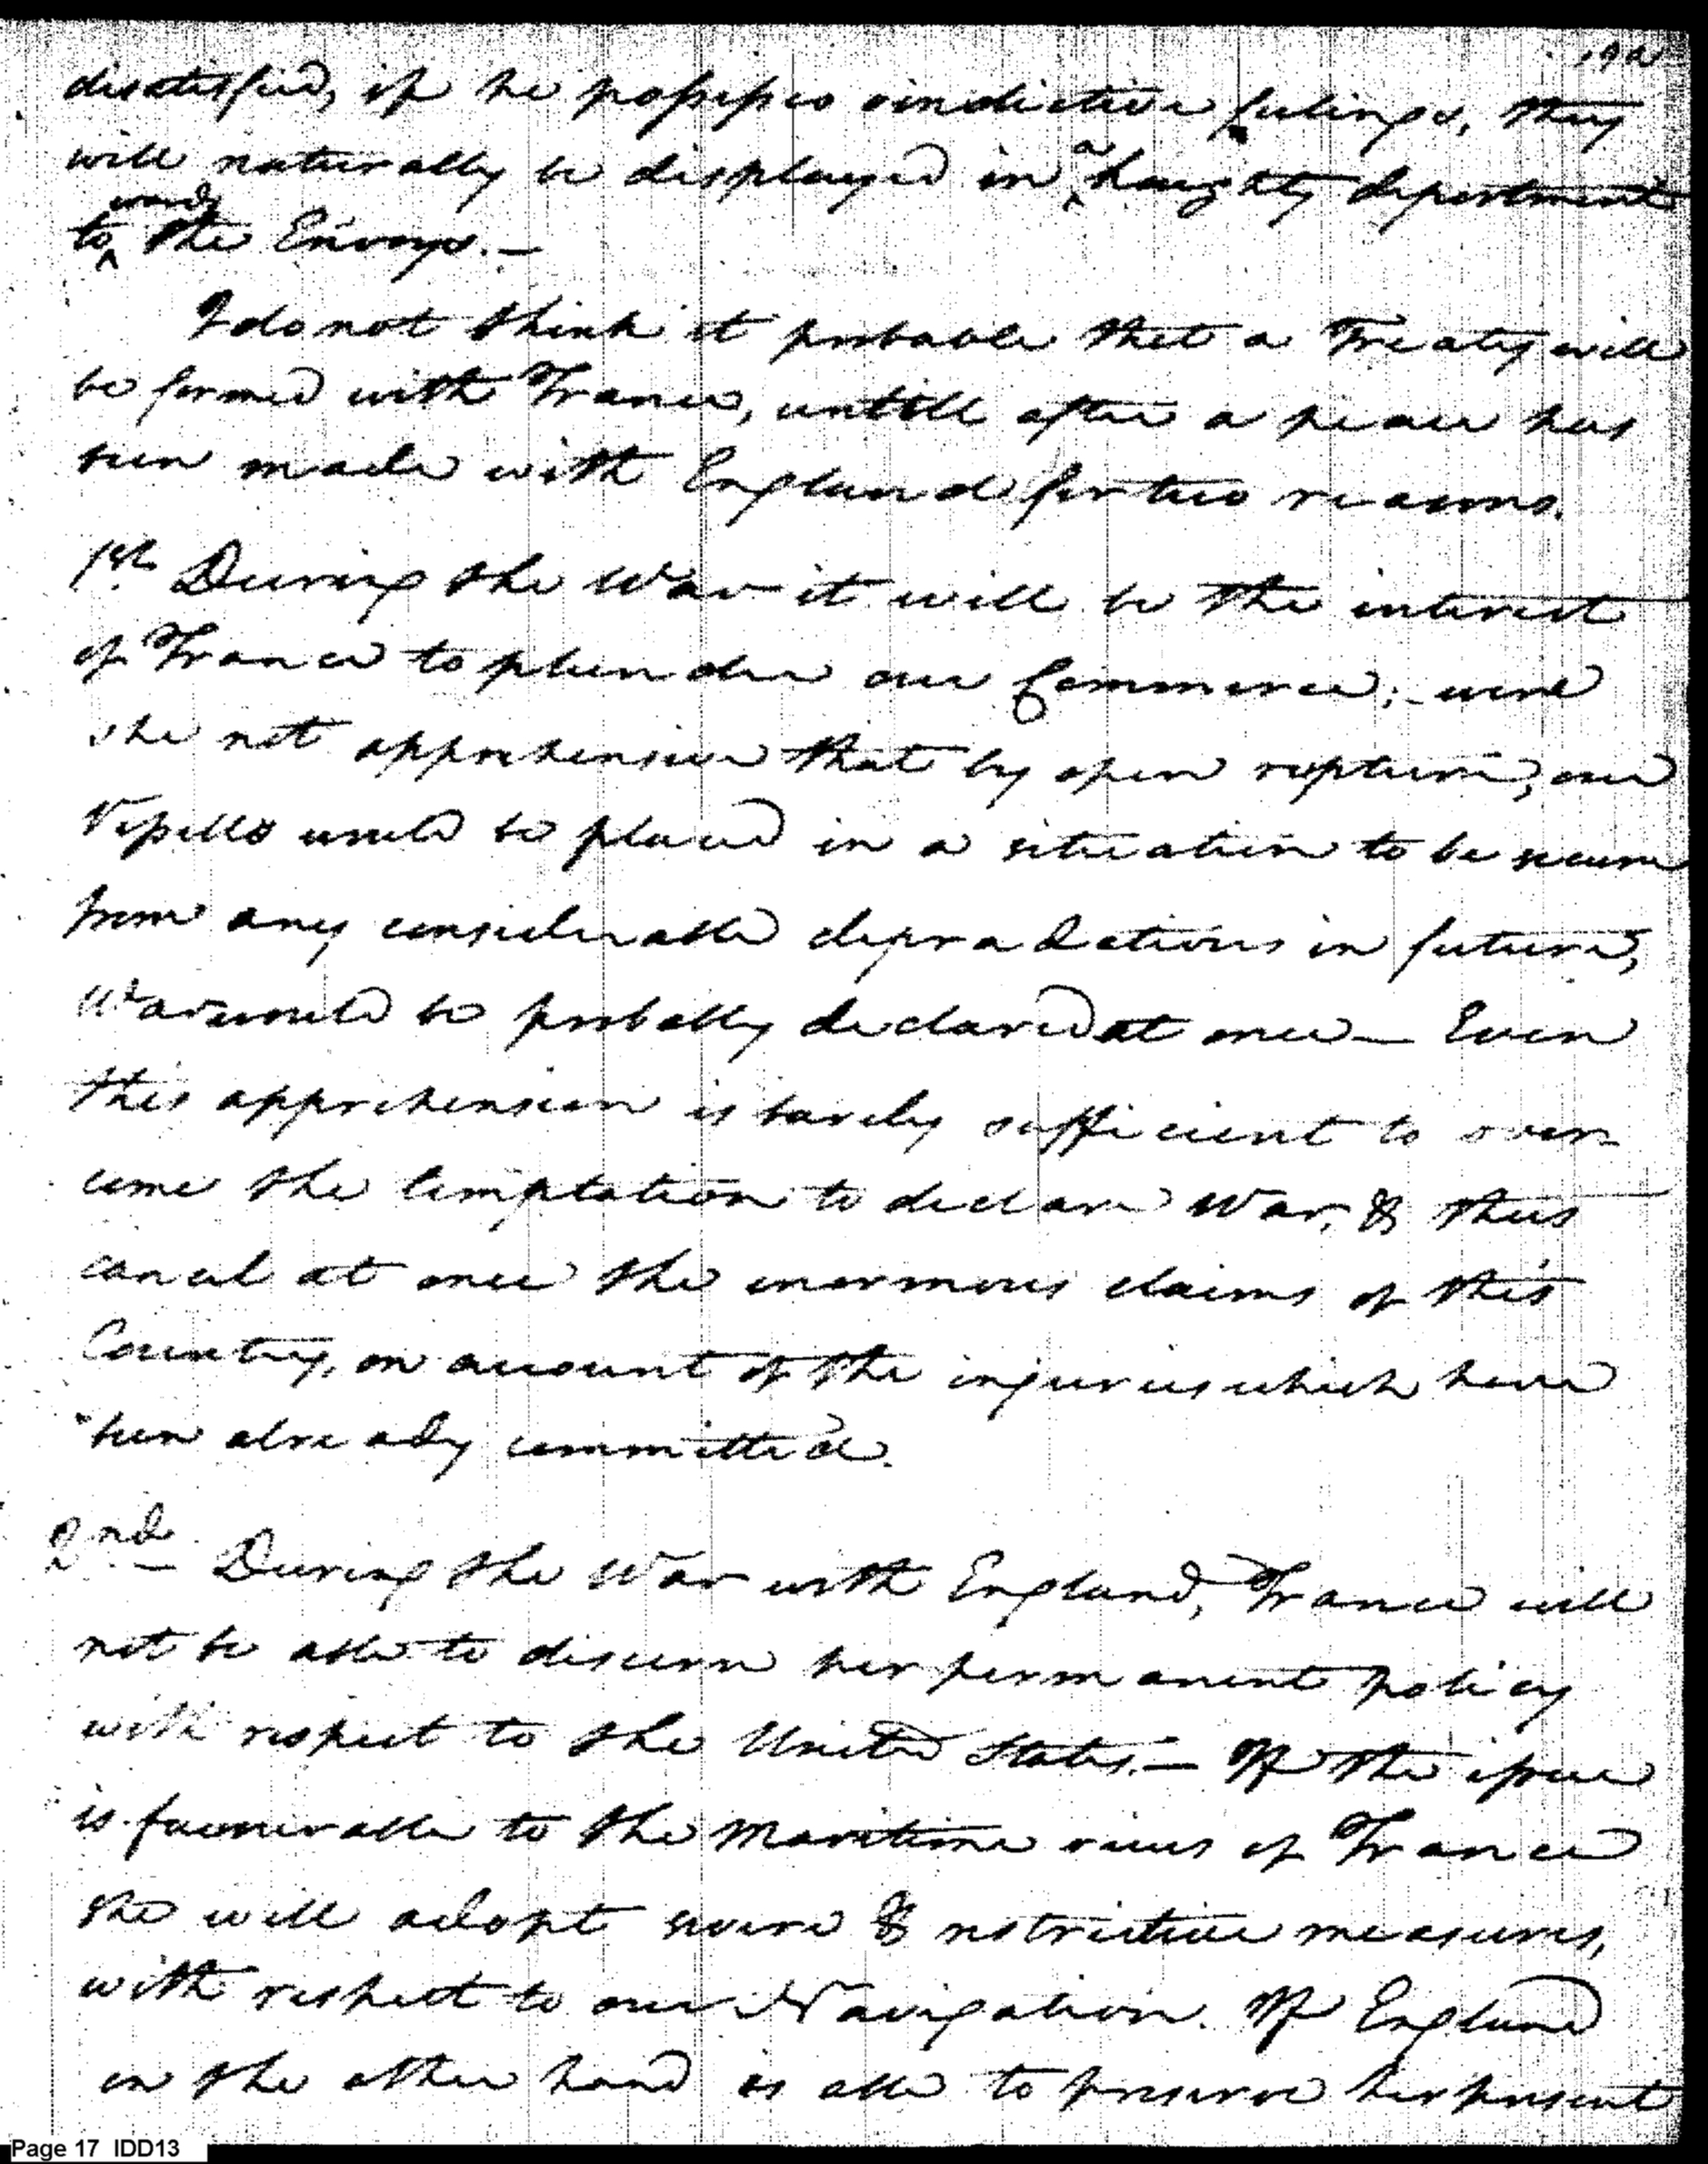 192
dissatisfied, if he possesses vindictive feelings, they
will naturally be displayed in a haughty deportment
towards the Envoys.—
I do not think it probable that a Treaty will
be formed with France, untill after a peace has
been made with England for two reasons.
1st. During the War it will be the interest
of France to plunder our Commerce;– were
she not apprehensive that by open rupture, our
Vessells would be placed in a situation to be secure
from any considerable depradations in future,
War would be probably declared at once— Even
this apprehension is barely sufficient to over-
come the temptation to declare War, & thus
cancel at once the enormous claims of this
Country, on account of the injuries which have
been already committed.
2nd. During the War with England, France will
not be able to discern her permanent policy
with respect to the United States.— If the issue
is favourable to the Maritime views of France
she will adopt severe & restrictive measures,
with respect to our Navigation. If England
on the other hand is able to preserve her present
Page 17 IDD13